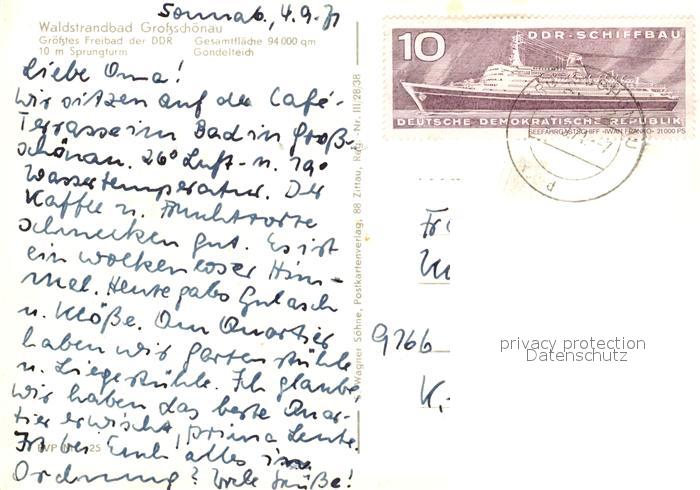 Sonnab., 4.9.71
Waldstrandbad Großschönau
Größtes Freibad der DDR Gesamtfläche 94 000 qm
10 m Sprungturm Gondelteich
Liebe Oma!
Wir sitzen auf der Café-
Terrasse im Bad in Groß-
schönau. 26° Luft- u. 19°
Wassertemperatur. Der
Kaffee u. Fruchttorte
schmecken gut. Es ist
ein wolkenloser Him-
mel. Heute gabs Gulasch
u. Klöße. Am Quartier
haben wir Gartenstühle
u. Liegestühle. Ich glaube,
wir haben das beste Quar-
tier erwischt, prima Leute.
Ist bei Euch alles in
Ordnung? Viele Grüße!
EVP 25
Wagner Söhne, Postkartenverlag, 88 Zittau, Reg.-Nr. III/28/38
10 DDR-SCHIFFBAU
DEUTSCHE DEMOKRATISCHE REPUBLIK
SEEFAHRGASTSCHIFF »IWAN FRANKO« 21000 PS
Fr
9766
K.
privacy protection
Datenschutz